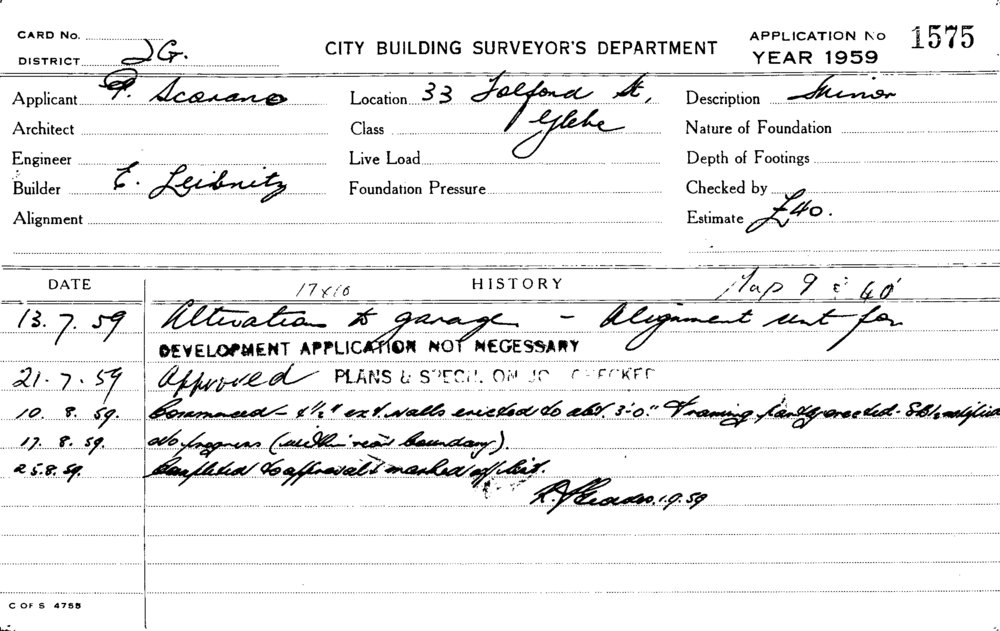 CARD No.
DISTRICT JG.
CITY BUILDING SURVEYOR'S DEPARTMENT
APPLICATION No 1575
YEAR 1959
Applicant P. Scorano
Location 33 Talfourd St,
Glebe
Description Minor
Architect
Class
Nature of Foundation
Engineer
Live Load
Depth of Footings
Builder E. Leibnitz
Foundation Pressure
Checked by
Alignment
Estimate £40.
DATE HISTORY
17x10 Map 9 & 40'
13.7.59 Alteration to garage - Alignment sent for
DEVELOPMENT APPLICATION NOT NECESSARY
21.7.59 Approved PLANS & SPECN. ON JOB CHECKED
10.8.59. Commenced - 4½" ext. walls erected to abt. 3'-0." Framing partly erected -
17.8.59. No progress (within rear boundary).
25.8.59. Completed to approval & marked off list.
1.9.59
C OF S 4755